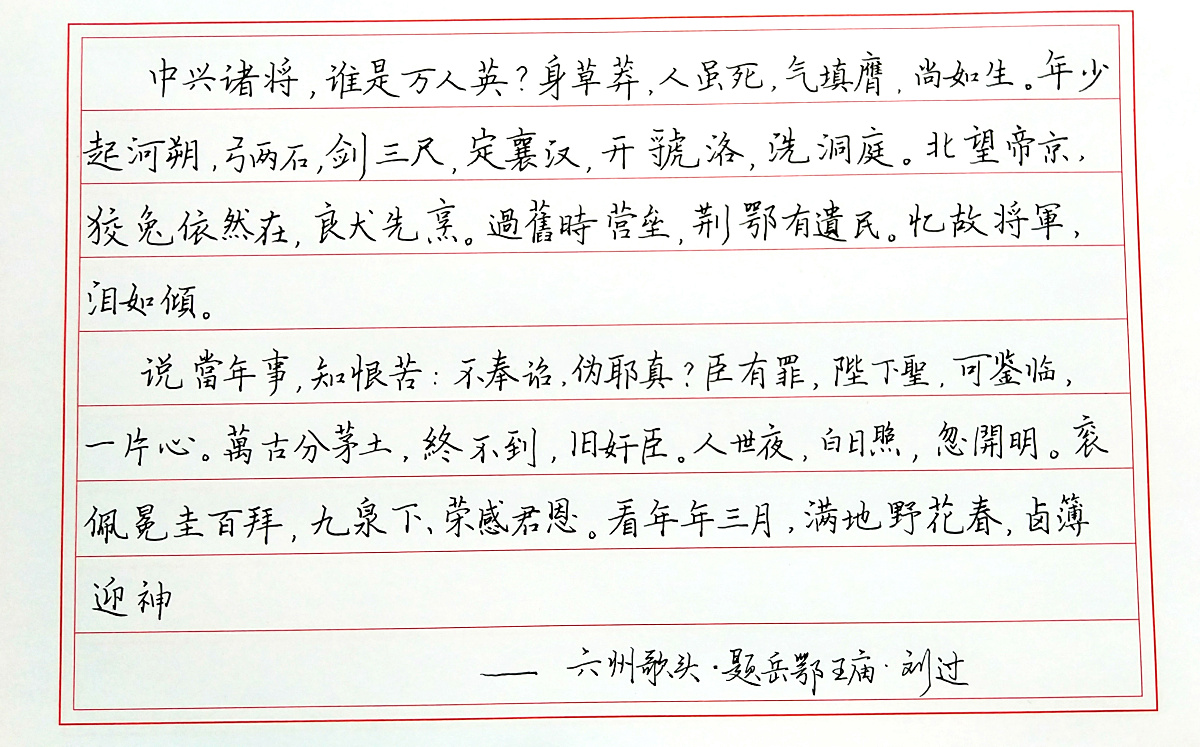 中兴诸将,谁是万人英?身草莽,人虽死,气填膺,尚如生。年少
起河朔,弓两石,剑三尺,定襄汉,开虢洛,洗洞庭。北望帝京,
狡兔依然在,良犬先烹。過舊時营垒,荆鄂有遺民。忆故将軍,
泪如傾。
说當年事,知恨苦:不奉诏,伪耶真?臣有罪,陛下聖,可鉴临,
一片心。萬古分茅土,終不到,旧奸臣。人世夜,白日照,忽開明。衮
佩冕圭百拜,九泉下、荣感君恩。看年年三月,满地野花春,卤簿
迎神
—— 六州歌头·题岳鄂王庙·刘过